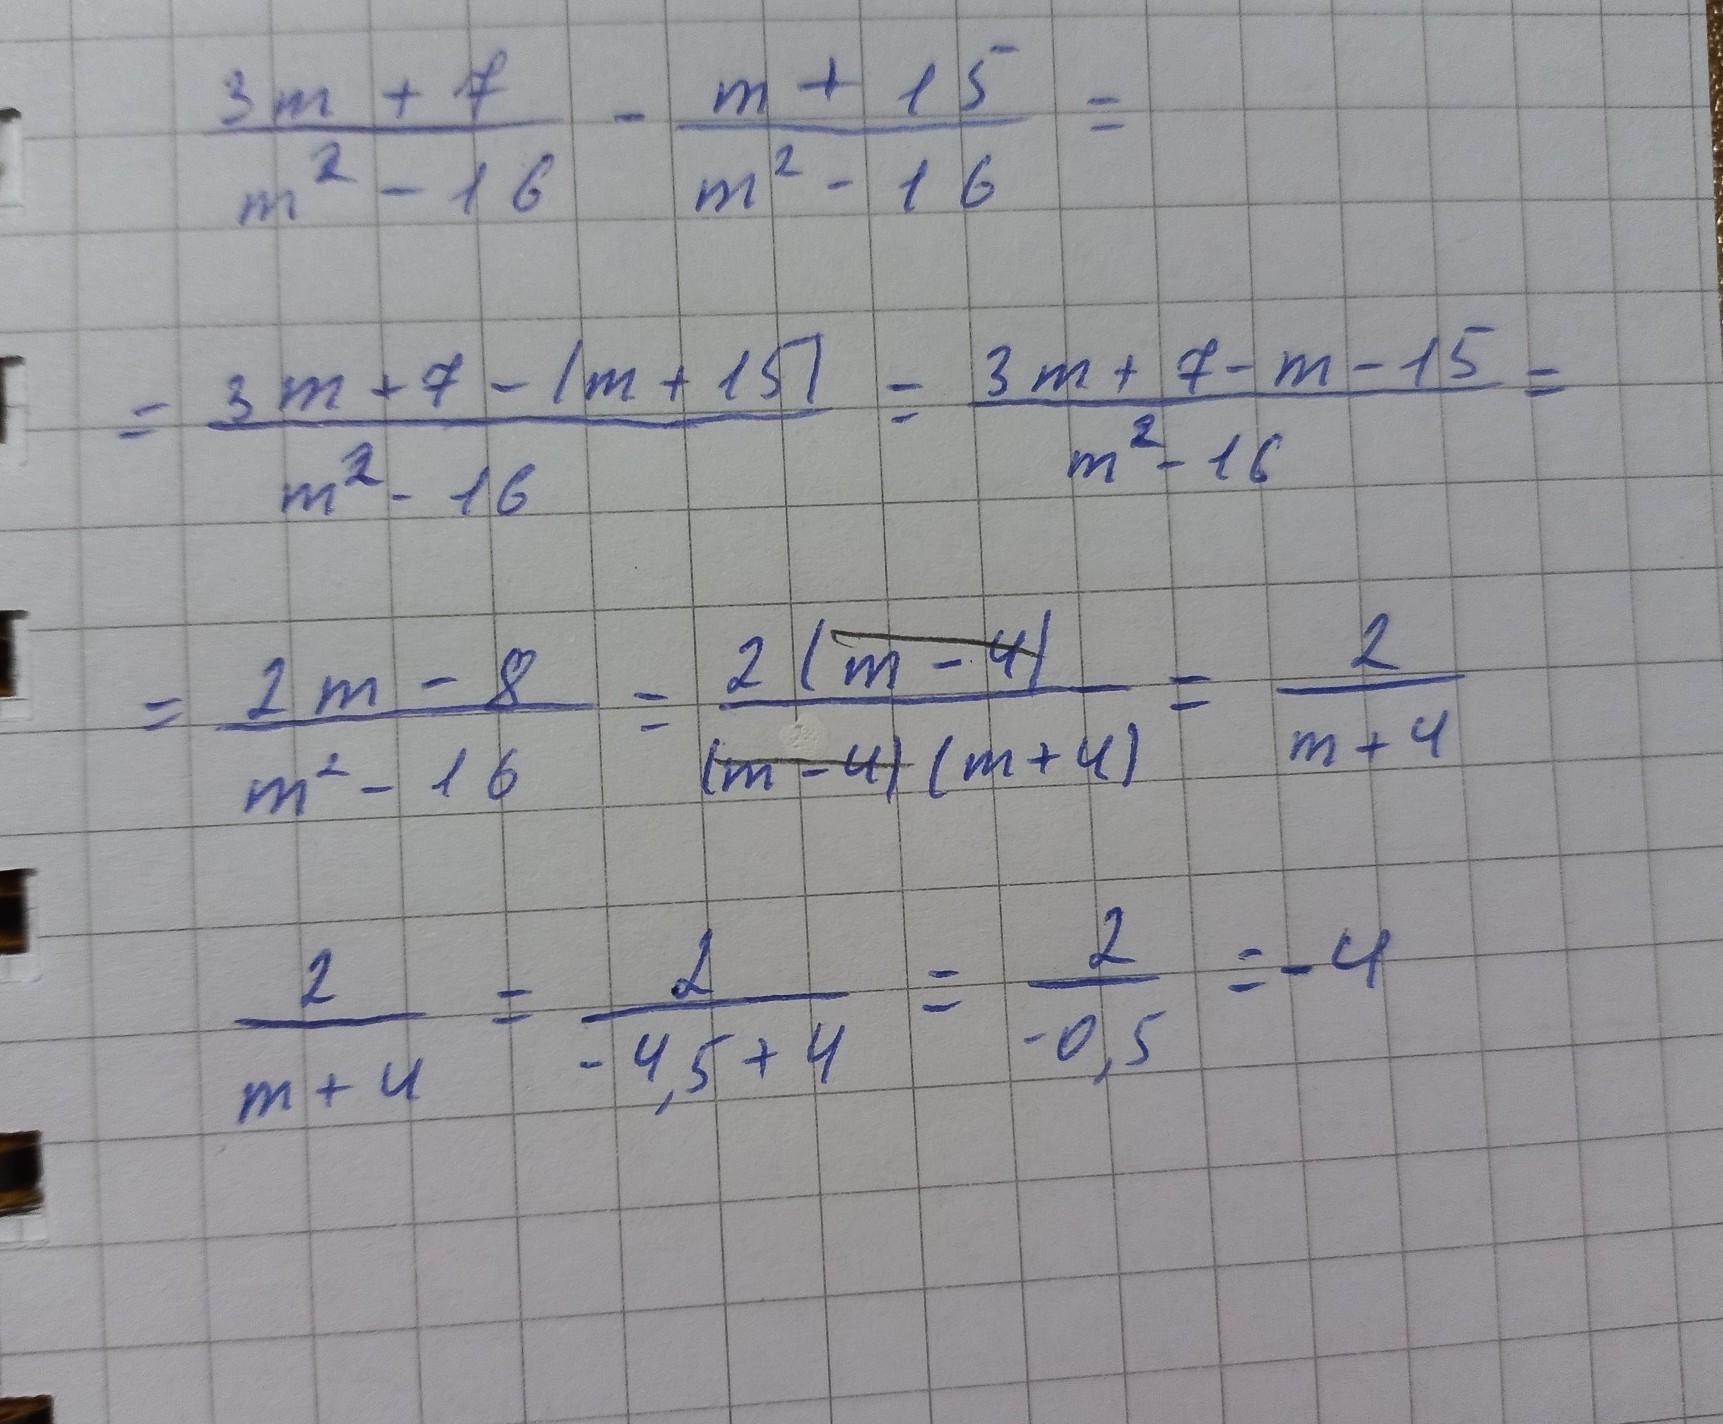 (3m + 7)/(m² - 16) - (m + 15)/(m² - 16) =
= (3m + 7 - (m + 15))/(m² - 16) = (3m + 7 - m - 15)/(m² - 16) =
= (2m - 8)/(m² - 16) = (2(m - 4))/((m - 4)(m + 4)) = 2/(m + 4)
2/(m + 4) = 2/(-4,5 + 4) = 2/(-0,5) = -4